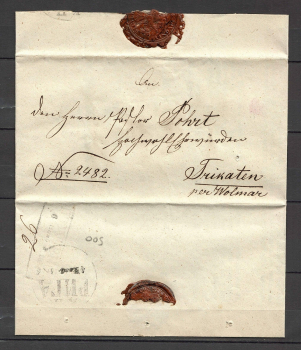 An
den Herrn Pastor Pohrt
Hochwohlehrwürden
N= 2482.
Trikaten
per Wolmar
26
500
РИГА